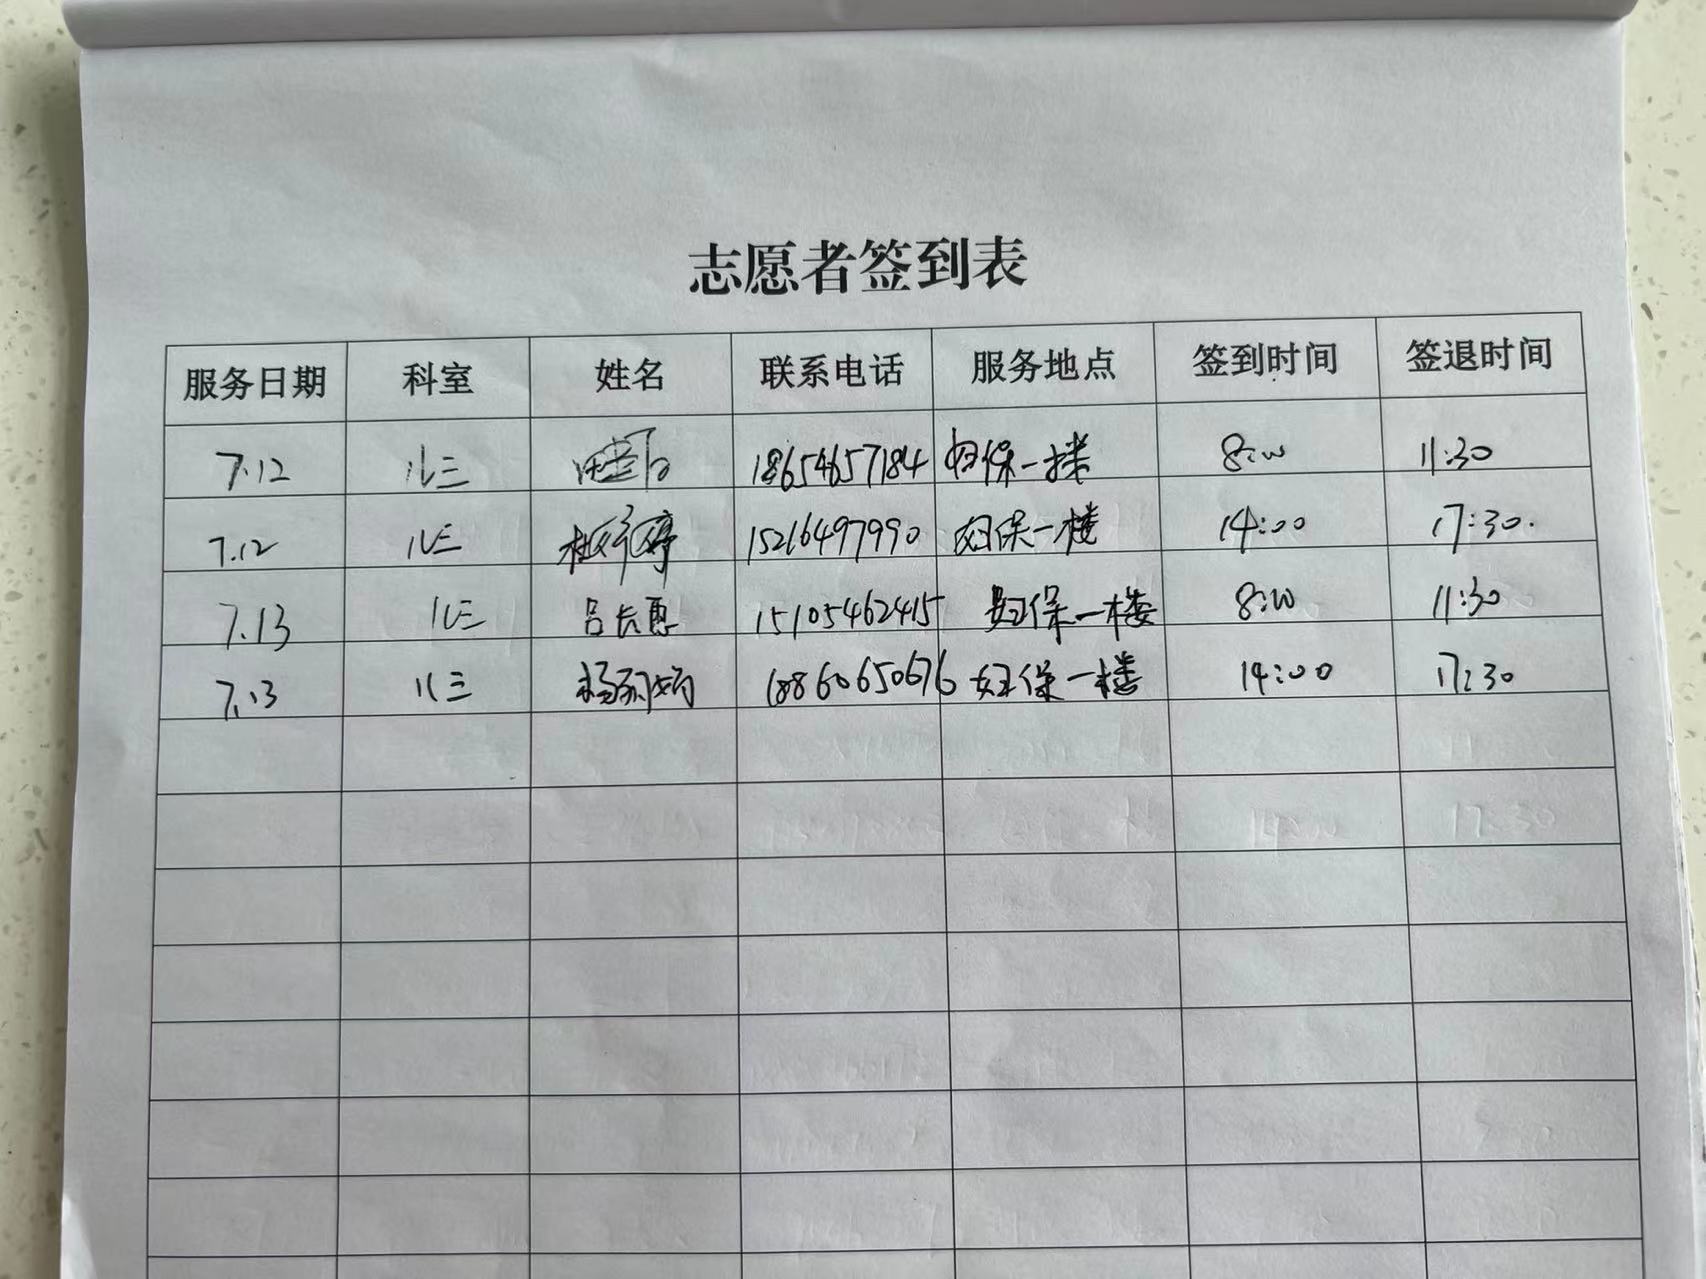 志愿者签到表
服务日期 科室 姓名 联系电话 服务地点 签到时间 签退时间
7.12 儿三 18654657184 妇保一楼 8:00 11:30
7.12 儿三 15216497990 妇保一楼 14:00 17:30.
7.13 儿三 15105462415 妇保一楼 8:00 11:30
7.13 儿三 18860650676 妇保一楼 14:00 17:30